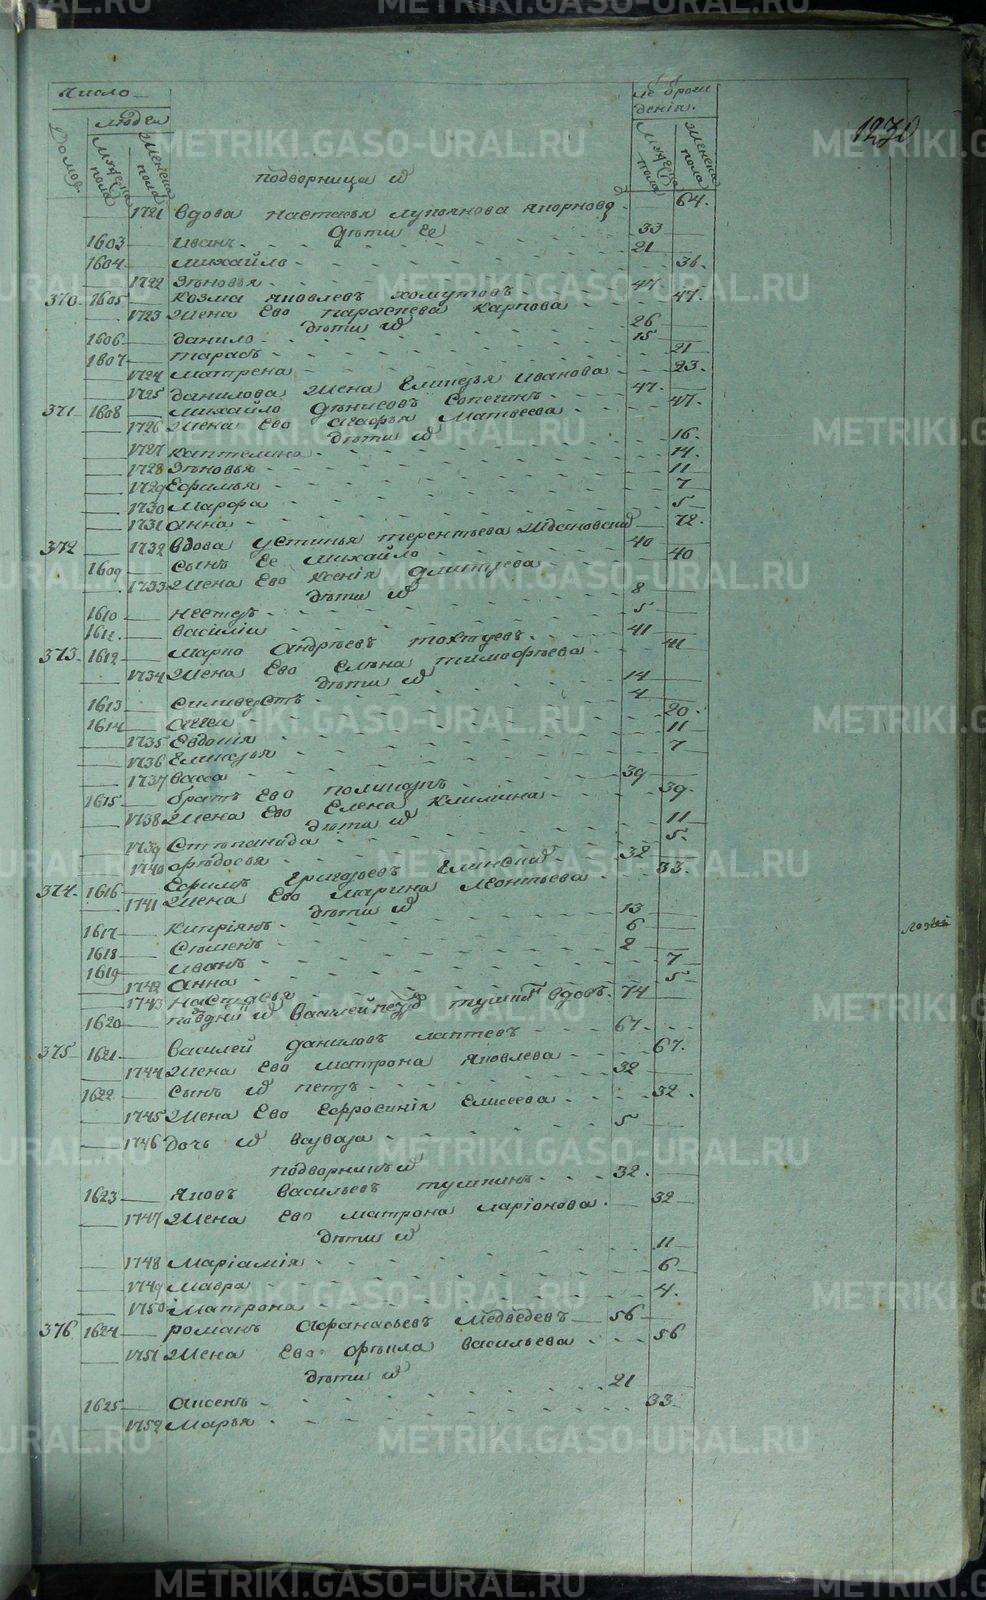 METRIKI.GASO-URAL.RU
Число
людей
Домов
Мужеска пола
Женска пола
лет от рождения.
Мужеска пола
Женска пола
1230
подворница их
1721 вдова настасья лупьянова 64.
дети ее
1603 иванъ 33
1604 михайло 21
1722 зеновья 36.
370 1605 козма яковлевъ хомутовъ 47
1723 жена Ево параскева карпова 47.
дети их
1606 данило 26
1607 тарасъ 15
1724 матрена 21
1725 данилова жена Елисавья иванова 23.
371 1608 михайло денисовъ 47.
1726 жена Ево агафья матвеева 47.
дети их
1727 каптелина 16.
1728 зеновья 14.
1729 Ефимья 11
1730 марфа 7
1731 анна 5
372 1732 вдова устинья терентьева ждановских 72.
1609 сынъ Ее михайло 40
1733 жена Ево ксения дмитриева 40
дети их
1610 нестеръ 8
1611 василии 5
373 1612 марко андреевъ 41
1734 жена Ево Елена тимофеева 41
дети их
1613 силиверстъ 14
1614 аггеи 4
1735 Евдокія 20
1736 Елисавья 11
1737 васса 7
1615 братъ Ево поликарпъ 39
1738 жена Ево Елена климина 39.
дети их
1739 Степанида 11
1740 федосья 5
374 1616 Ефимъ григорьевъ глинских 32
1741 жена Ево марина леонтьева 33.
дети их
1617 кипріянъ 13
1618 Семенъ 6
1619 иванъ 2
1742 анна 7
1743 настасья 5
1620 василей вдовъ 74
375 1621 василей даниловъ лаптевъ 67
1744 жена Ево матрона яковлева 67.
1622 сынъ их петръ 32
1745 жена Ево Ефросинія Елисеева 32.
1746 дочь их варвара 5
подворникъ их
1623 яковъ васильевъ тушкинъ 32.
1747 жена Ево матрона ларіонова 32
дети их
1748 маріамія 11
1749 мавра 6
1750 матрона 4.
376 1624 романъ афанасьевъ медведевъ 56
1751 жена Ево фекла васильева 56
дети их
1625 аксенъ 21
1752 марья 33